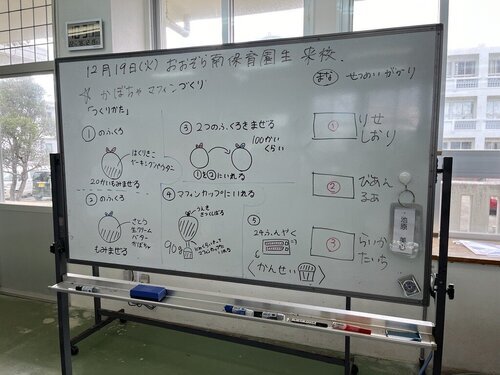 12月19日(火) おおぞら南保育園生 来校.
☆ かぼちゃ マフィンづくり
まな せつめいがかり
「つくりかた」
①のふくろ
はくりきこ
ベーキングパウダー
20かいもみまぜる
②のふくろ
さとう
生クリーム
バター
かぼちゃ
もみまぜる
③ 2つのふくろをまぜる
100かい
くらい
①を②にいれる
④ マフィンカップにいれる
うえを
きってしぼる
90g
⑤
24ふんやく
かんせい
① りせ
しおり
② ぴあん
るあ
③ らいか
たいち